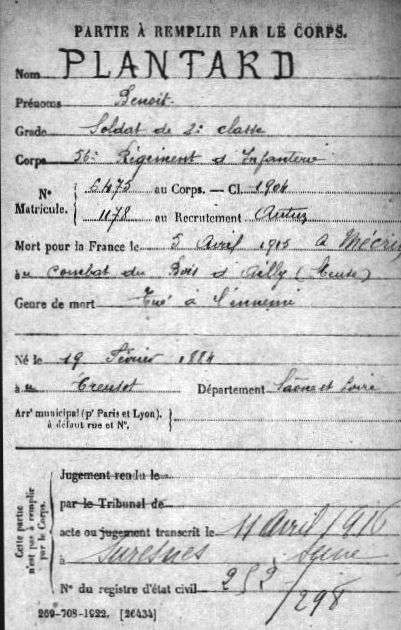 PARTIE À REMPLIR PAR LE CORPS.
Nom PLANTARD
Prénoms Benoit
Grade Soldat de 2e classe
Corps 56e Régiment d'Infanterie
N° Matricule. { 6475 au Corps. — Cl. 1904
1178 au Recrutement Autun
Mort pour la France le 5 Avril 1915 à Mécrin
au combat du Bois d'Ailly (Meuse)
Genre de mort Tué à l'ennemi
Né le 19 Février 1884
à u Creusot Département Saône et Loire
Arr' municipal (p' Paris et Lyon), à défaut rue et N°. }
Cette partie n'est pas à remplir par le Corps.
Jugement rendu le
par le Tribunal de
acte ou jugement transcrit le 11 avril 1916
à Suresnes Seine
N° du registre d'état civil 252/298
269-708-1922. [26434]